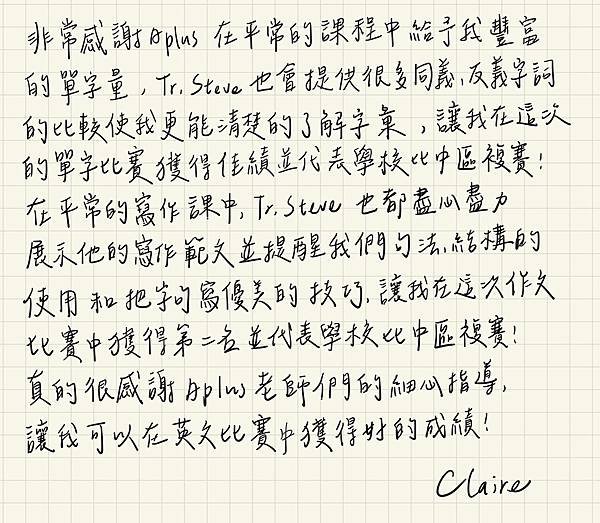 非常感謝Aplus 在平常的課程中給予我豐富
的單字量，Tr. Steve也會提供很多同義、反義字詞
的比較使我更能清楚的了解字彙，讓我在這次
的單字比賽獲得佳績並代表學校比中區複賽！
在平常的寫作課中，Tr. Steve 也都盡心盡力
展示他的寫作範文並提醒我們句法、結構的
使用和把字句寫優美的技巧，讓我在這次作文
比賽中獲得第二名並代表學校比中區複賽！
真的很感謝Aplus老師們的細心指導，
讓我可以在英文比賽中獲得好的成績！
Claire